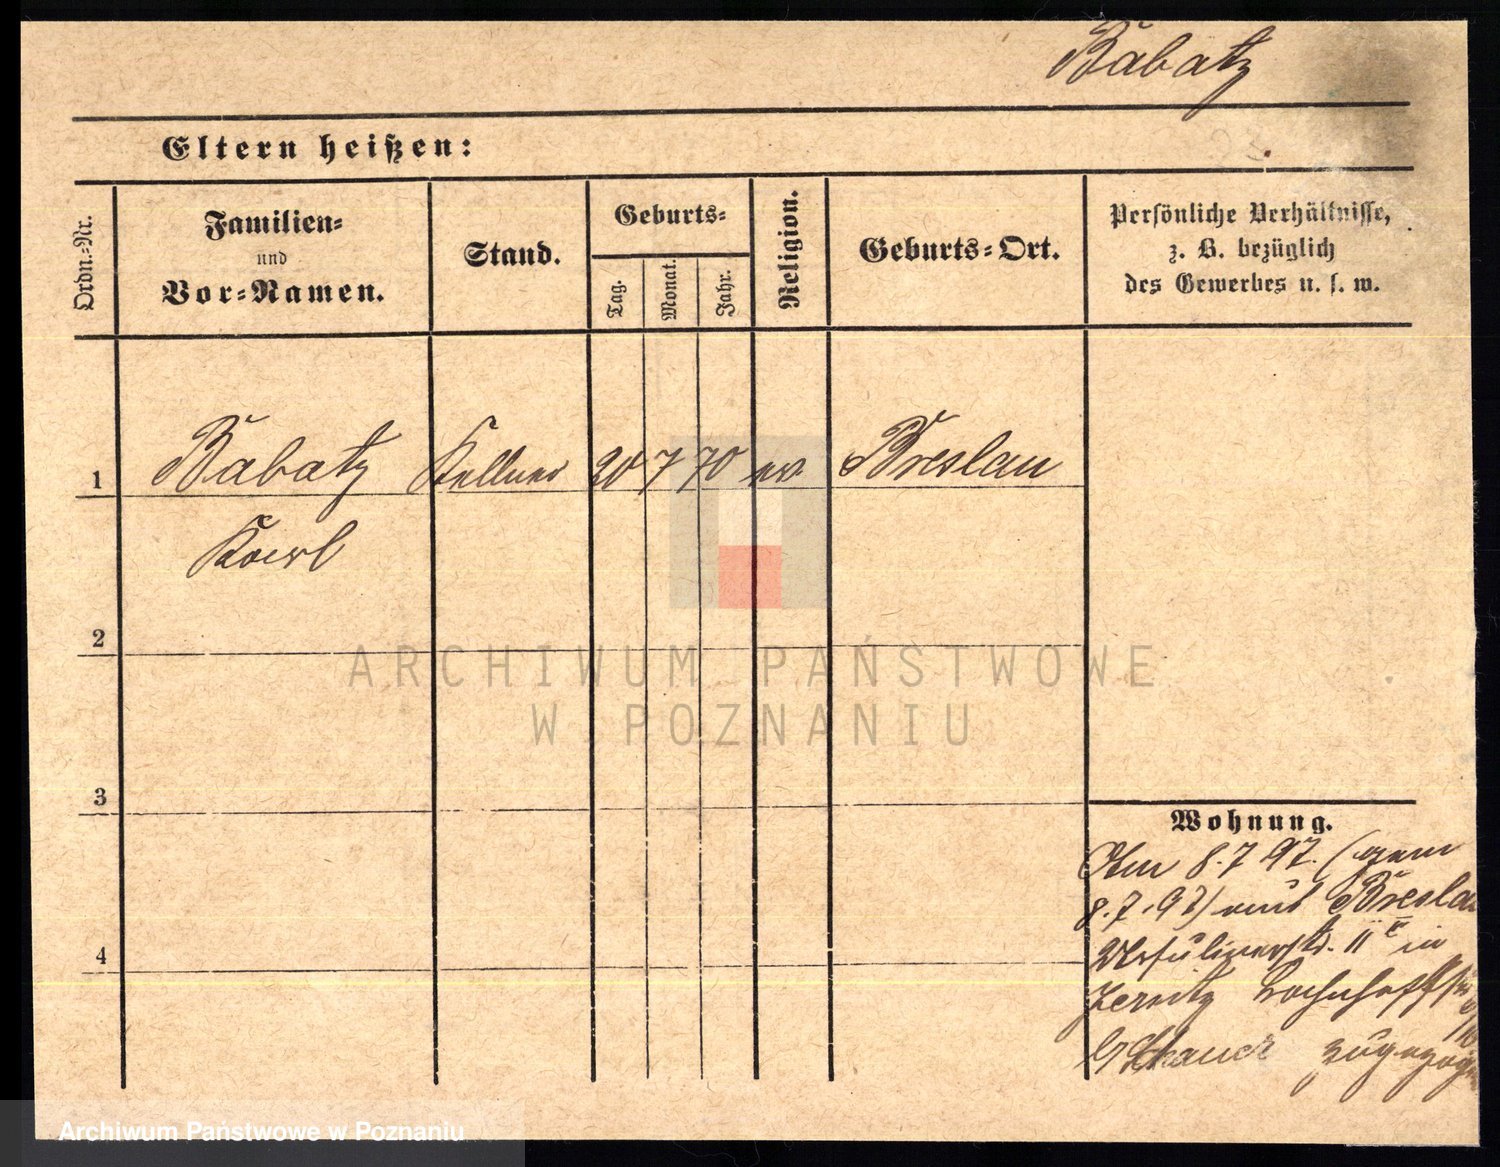 Babatz
Eltern heißen:
Ordn.-Nr.
Familien-
und
Vor-Namen.
Stand.
Geburts-
Tag.
Monat.
Jahr.
Religion.
Geburts-Ort.
Persönliche Verhältnisse,
z. B. bezüglich
des Gewerbes u. s. w.
1 Babatz Kellner 20 7 70 ev Breslau
Karl
2
3
4
Wohnung.
8.7 97. (gem
8.7.97) aus Breslau
Ursulinerstr. 11 in
Jersitz
zugezogen
ARCHIWUM PAŃSTWOWE
W POZNANIU
Archiwum Państwowe w Poznaniu